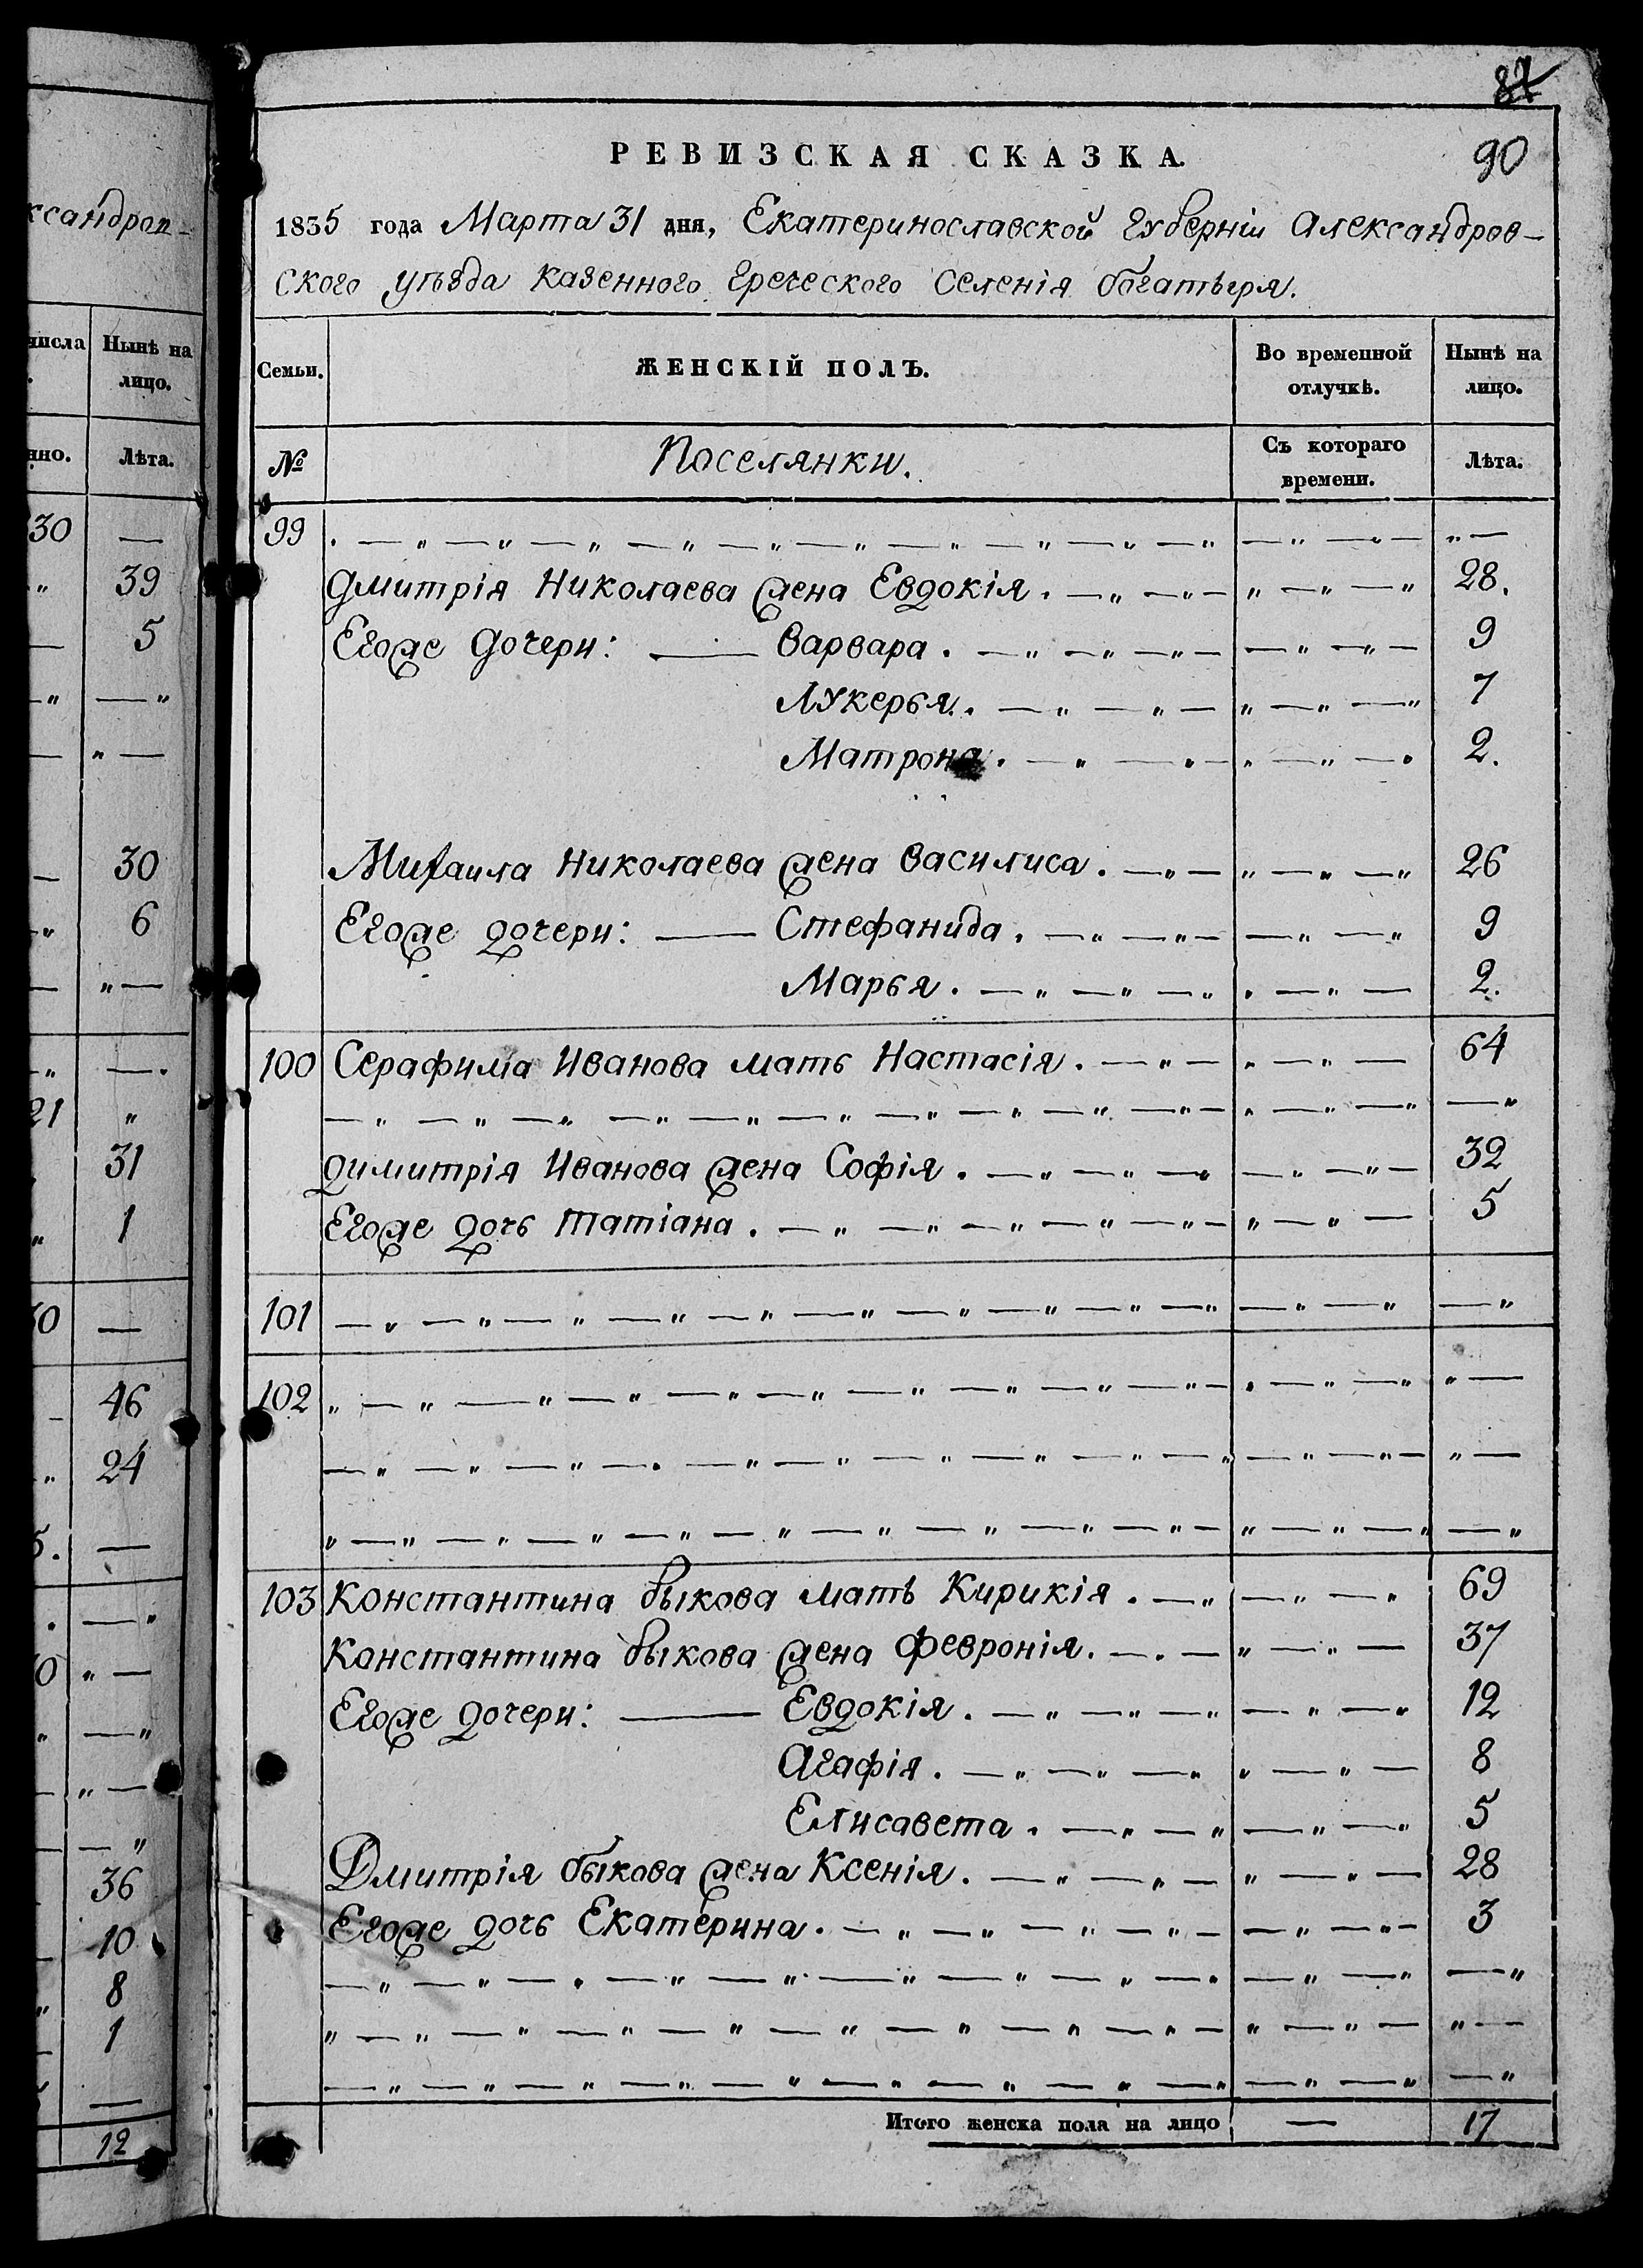 ксандров-
числа Нынѣ на
лицо.
нно. Лѣта.
30 —
39
5
30
6
21
31
1
46
24
5. —
36
10
8
1
12
87
РЕВИЗСКАЯ СКАЗКА.
90
1835 года Марта 31 дня, Екатеринославской Губерніи Александров-
ского уѣзда казенного греческого селенія богатыря.
Семьи. ЖЕНСКІЙ ПОЛЪ. Во временной отлучкѣ. Нынѣ на лицо.
№ Поселянки. Съ котораго времени. Лѣта.
99
Дмитрія Николаева жена Евдокія. 28.
Егоже дочери: — Варвара. 9
Лукерья. 7
Матрона. 2.
Михаила Николаева жена Василиса. 26
Егоже дочери: — Стефанида. 9
Марья. 2.
100 Серафима Иванова мать Настасія. 64
Димитрія Иванова жена Софія. 32
Егоже дочь Татіана. 5
101
102
103 Константина быкова мать Кирикія. 69
Константина быкова жена Февронія. 37
Егоже дочери: — Евдокія. 12
Агафія. 8
Елисавета. 5
Дмитрія быкова жена Ксенія. 28
Егоже дочь Екатерина. 3
Итого женска пола на лицо — 17